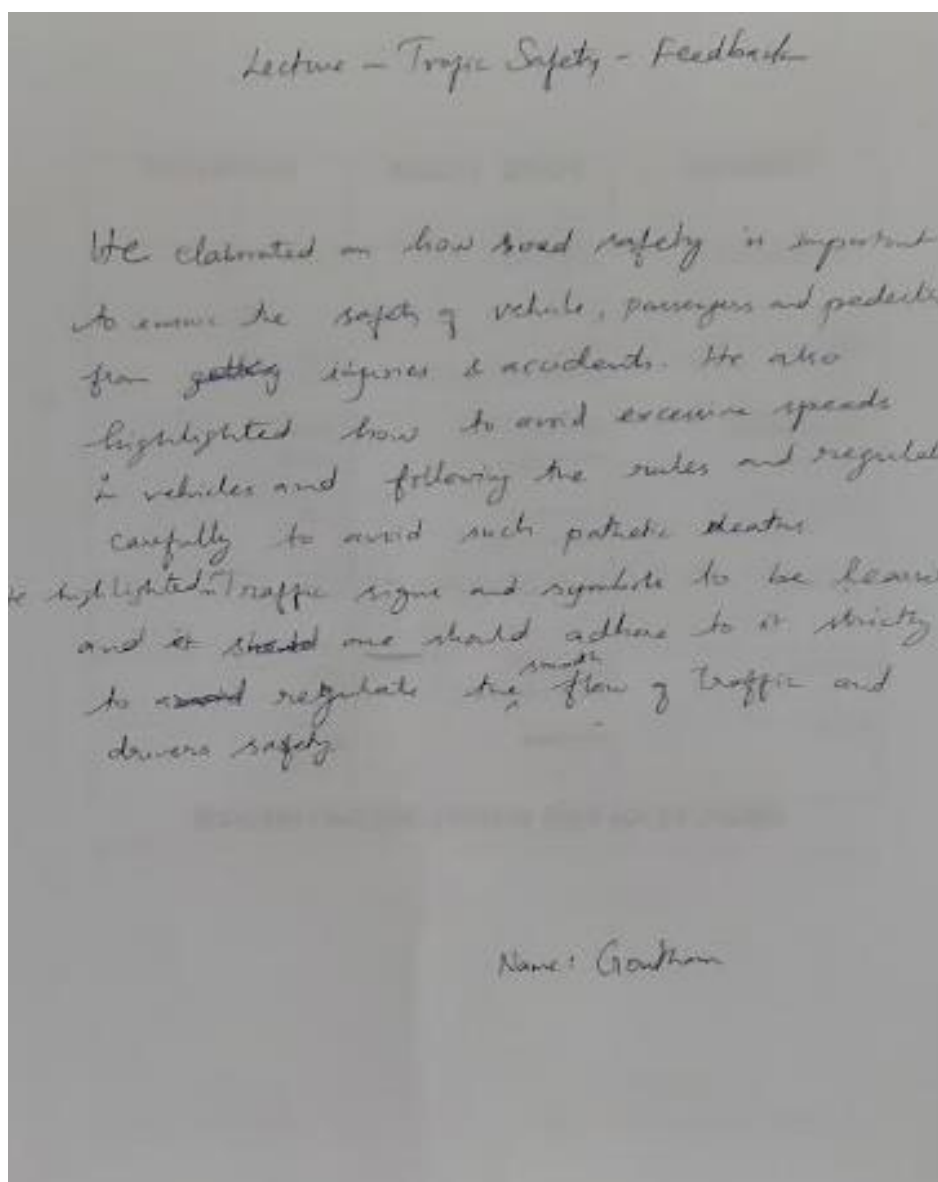 Lecture - Trafic Safety - Feedback
He elaborated on how road safety is important
to ensure the safety of vehicle, passengers and
from getting injuries & accidents. He also
highlighted how to avoid excessive speeds
in vehicles and following the rules and
carefully to avoid such pathetic deaths.
highlighted Traffic signs and symbols to be
and it should one should adhere to it strictly
to avoid regulate the smooth flow of traffic and
drivers safety.
Name: Goutham